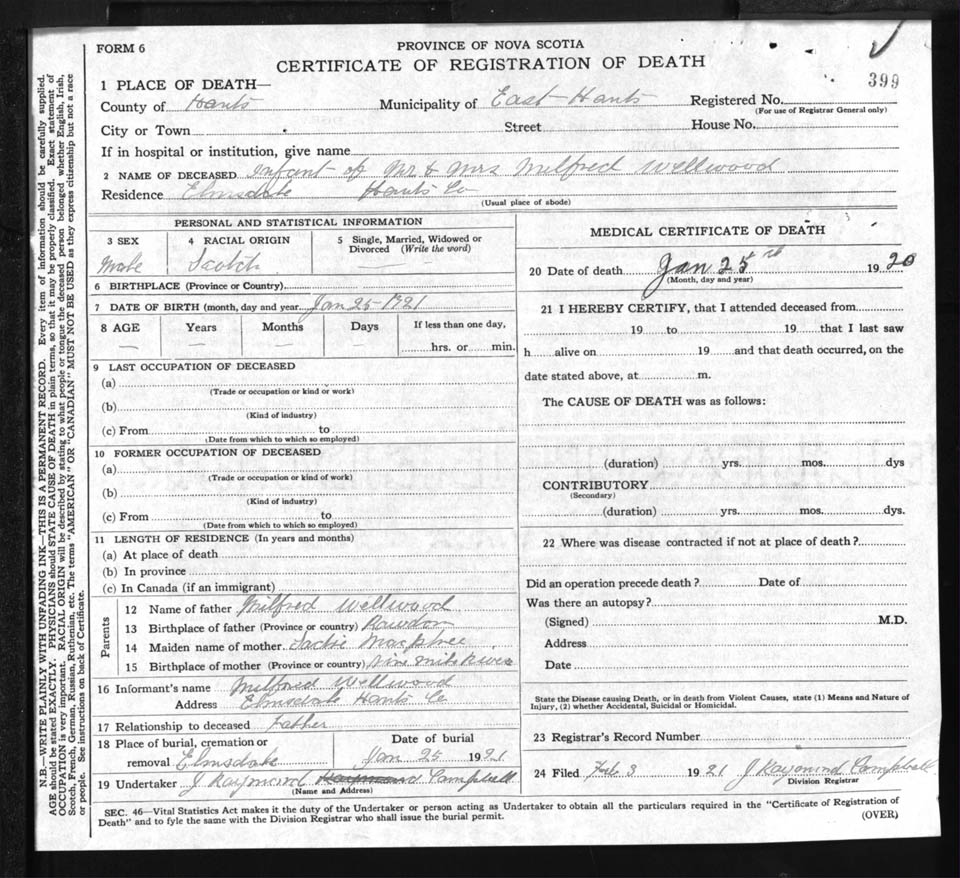 FORM 6
PROVINCE OF NOVA SCOTIA
CERTIFICATE OF REGISTRATION OF DEATH
399
1 PLACE OF DEATH—
County of Hants Municipality of East-Hants Registered No.
(For use of Registrar General only)
City or Town Street House No.
If in hospital or institution, give name
2 NAME OF DECEASED infant of Mr & Mrs Milfred Wellwood
Residence Elmsdale Hants Co
(Usual place of abode)
PERSONAL AND STATISTICAL INFORMATION
3 SEX
Male
4 RACIAL ORIGIN
Scotch
5 Single, Married, Widowed or
Divorced (Write the word)
—
6 BIRTHPLACE (Province or Country)
7 DATE OF BIRTH (month, day and year Jan 25-1921
8 AGE Years Months Days If less than one day,
— — — —
hrs. or min.
9 LAST OCCUPATION OF DECEASED
(a)
(Trade or occupation or kind or work)
(b)
(Kind of industry)
(c) From to
(Date from which to which so employed)
10 FORMER OCCUPATION OF DECEASED
(a)
(Trade or occupation or kind of work)
(b)
(Kind of industry)
(c) From to
(Date from which to which so employed)
11 LENGTH OF RESIDENCE (In years and months)
(a) At place of death
(b) In province
(c) In Canada (if an immigrant)
Parents
12 Name of father Milfred Wellwood
13 Birthplace of father (Province or country) Rawdon
14 Maiden name of mother Sadie MacPhee
15 Birthplace of mother (Province or country) Nine Mile River
16 Informant's name Milfred Wellwood
Address Elmsdale Hants Co
17 Relationship to deceased Father
18 Place of burial, cremation or
removal Elmsdale
Date of burial
Jan 25 1921
19 Undertaker J Raymond Raymond Campbell
(Name and Address)
MEDICAL CERTIFICATE OF DEATH
20 Date of death Jan 25th 1920
(Month, day and year)
21 I HEREBY CERTIFY, that I attended deceased from
19 to 19 that I last saw
h alive on 19 and that death occurred, on the
date stated above, at m.
The CAUSE OF DEATH was as follows:
(duration) yrs. mos. dys
CONTRIBUTORY
(Secondary)
(duration) yrs. mos. dys.
22 Where was disease contracted if not at place of death?
Did an operation precede death? Date of
Was there an autopsy?
(Signed) M.D.
Address
Date
State the Disease causing Death, or in death from Violent Causes, state (1) Means and Nature of
Injury, (2) whether Accidental, Suicidal or Homicidal.
23 Registrar's Record Number
24 Filed Feb 3 1921 J Raymond Campbell
Division Registrar
SEC. 46—Vital Statistics Act makes it the duty of the Undertaker or person acting as Undertaker to obtain all the particulars required in the "Certificate of Registration of
Death" and to fyle the same with the Division Registrar who shall issue the burial permit.
(OVER)
N.B.—WRITE PLAINLY WITH UNFADING INK—THIS IS A PERMANENT RECORD. Every item of information should be carefully supplied.
AGE should be stated EXACTLY. PHYSICIANS should STATE CAUSE OF DEATH in plain terms, so that it may be properly classified. Exact statement of
OCCUPATION is very important. RACIAL ORIGIN will be described by stating to what people or tongue the deceased person belonged whether English, Irish,
Scotch, French, German, Russian, Ruthenian, etc. The terms "AMERICAN" OR "CANADIAN" MUST NOT BE USED as they express citizenship but not a race
or people. See instructions on back of Certificate.